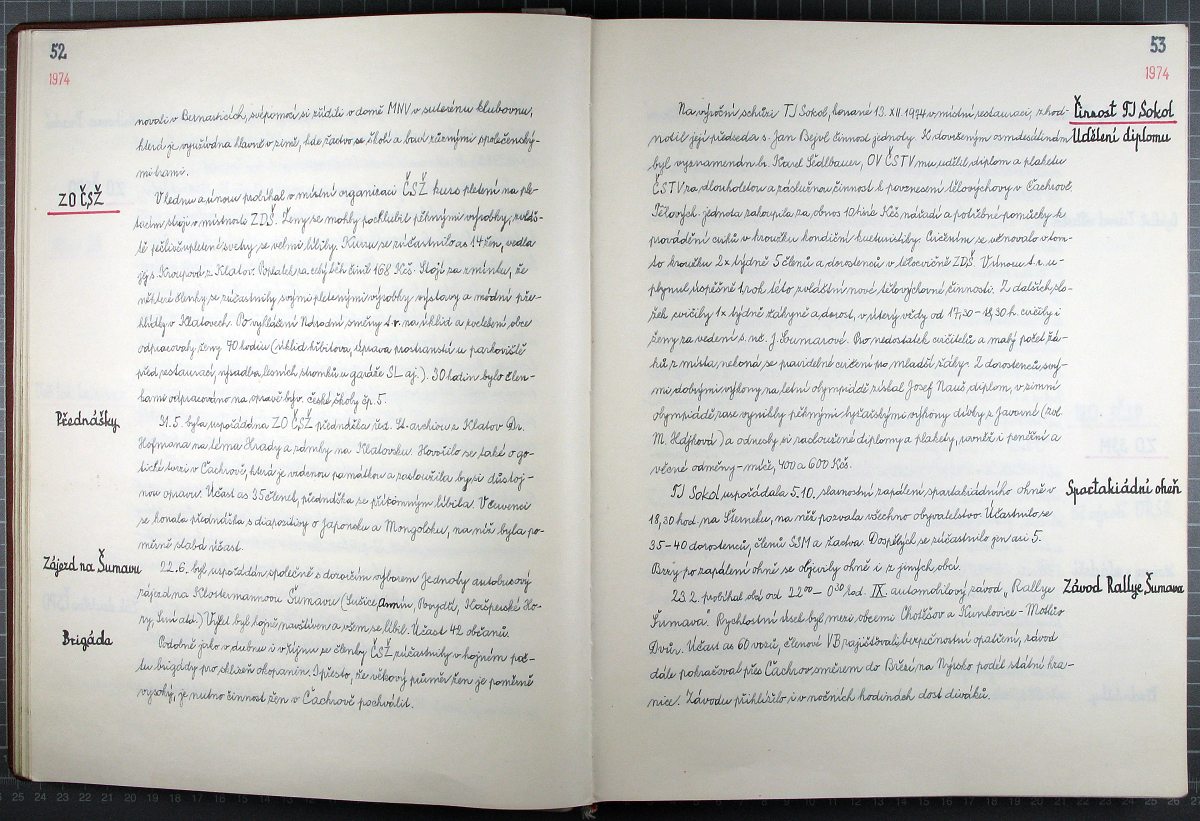 52
1974
novali v Bernarticích, svépomocí si zřídili v domě MNV v suterénu klubovnu,
která je využívána hlavně v zimě, kde žactvo se školí a baví různými společenský-
mi hrami.
ZO ČSŽ
V lednu a únoru probíhal v místní organizaci ČSŽ kurs pletení na ple-
tacím stroji v místnosti ZDŠ. Ženy se mohly pochlubit pěknými výrobky, zvláš-
tě pečlivě upletené svetry se velmi líbily. Kursu se zúčastnilo as 14 žen, vedla
jej s. Kroupová z Klatov. Poplatek za celý běh činil 168 Kčs. Stojí za zmínku, že
některé členky se zúčastnily svými pletenými výrobky výstavy a módní pře-
hlídky v Klatovech. Po vyhlášení Národní směny t.r. na úklid a zvelebení obce
odpracovaly ženy 70 hodin (úklid hřbitova, úprava prostranství u parkoviště
před restaurací, výsadba lesních stromků u garáže SL aj.). 30 hodin bylo člen-
kami odpracováno na opravě býv. české školy čp. 5.
Přednášky
31.5. byla uspořádána ZO ČSŽ přednáška řed. St. archivu z Klatov Dr.
Hofmana na téma Hrady a zámky na Klatovsku. Hovořilo se také o go-
tické tvrzi v Čachrově, která je vzácnou památkou a zasloužila by si důstoj-
nou opravu. Účast as 35 členek, přednáška se přítomným líbila. V červenci
se konala přednáška s diapositivy o Japonsku a Mongolsku, na níž byla po-
měrně slabá účast.
Zájezd na Šumavu
22.6. byl uspořádán společně s dozorčím výborem Jednoty autobusový
zájezd na Klostermannovu Šumavu (Sušice, Annín, Povydří, Kašperské Ho-
ry, Srní atd.) Výlet byl hojně navštíven a všem se líbil. Účast 42 občanů.
Brigáda
Podobně jako v dubnu i v říjnu se členky ČSŽ zúčastnily v hojném poč-
tu brigády pro sklizeň okopanin. I přesto, že věkový průměr žen je poměrně
vysoký, je nutno činnost žen v Čachrově pochválit.
53
1974
Na výroční schůzi TJ Sokol, konané 13. XII 1974 v místní restauraci, zhod-
Činnost TJ Sokol
notil její předseda s. Jan Bejvl činnost jednoty. K dovršeným osmdesátinám
Udělení diplomu
byl vyznamenán br. Karel Sedlbauer, OV ČSTV mu udělil diplom a plaketu
ČSTV za dlouholetou a záslužnou činnost k povznesení tělovýchovy v Čachrově.
Tělových. jednota zakoupila za obnos 10 tisíc Kčs nářadí a potřebné pomůcky k
provádění cviků v kroužku kondiční kulturistiky. Cvičením se věnovalo v tom-
to kroužku 2x týdně 5 členů a dorostenců v tělocvičně ZDŠ. V únoru t.r. u-
plynul úspěšně 1. rok této zvláštní nové tělovýchovné činnosti. Z dalších slo-
žek cvičily 1x týdně žákyně a dorost, v úterý vždy od 17,30 - 18,30 h. cvičily i
ženy za vedení s. uč. J. Sumarové. Pro nedostatek cvičitelů a malý počet žá-
ků z místa nekoná se pravidelné cvičení pro mladší žáky. Z dorostenců svý-
mi dobrými výkony na letní olympiádě získal Josef Nauš diplom, v zimní
olympiádě zase vynikly pěknými lyžařskými výkony dívky z Javorné (zvl.
M. Hájková) a odnesly si zasloužené diplomy a plakety, rovněž i peněžní a
věcné odměny - míče, 400 a 600 Kčs.
TJ Sokol uspořádala 5.10. slavnostní zapálení spartakiádního ohně v
Spartakiádní oheň
18,30 hod. na Šterneku, na něž pozvala všechno obyvatelstvo. Účastnilo se
35-40 dorostenců, členů SSM a žactva. Dospělých se zúčastnilo jen asi 5.
Brzy po zapálení ohně se objevily ohně i z jiných obcí.
23.2. probíhal obcí od 22⁰⁰ - 0³⁰ hod. IX. automobilový závod „Rallye
Závod Rallye Šumava
Šumava". Rychlostní úsek byl mezi obcemi Chotěšov a Kunkovice - Motlův
Dvůr. Účast as 60 vozů, členové VB zajišťovali bezpečnostní opatření, závod
dále pokračoval přes Čachrov směrem do Běšin na Nýrsko podél státní hra-
nice. Závodu přihlíželo i v nočních hodinách dost diváků.